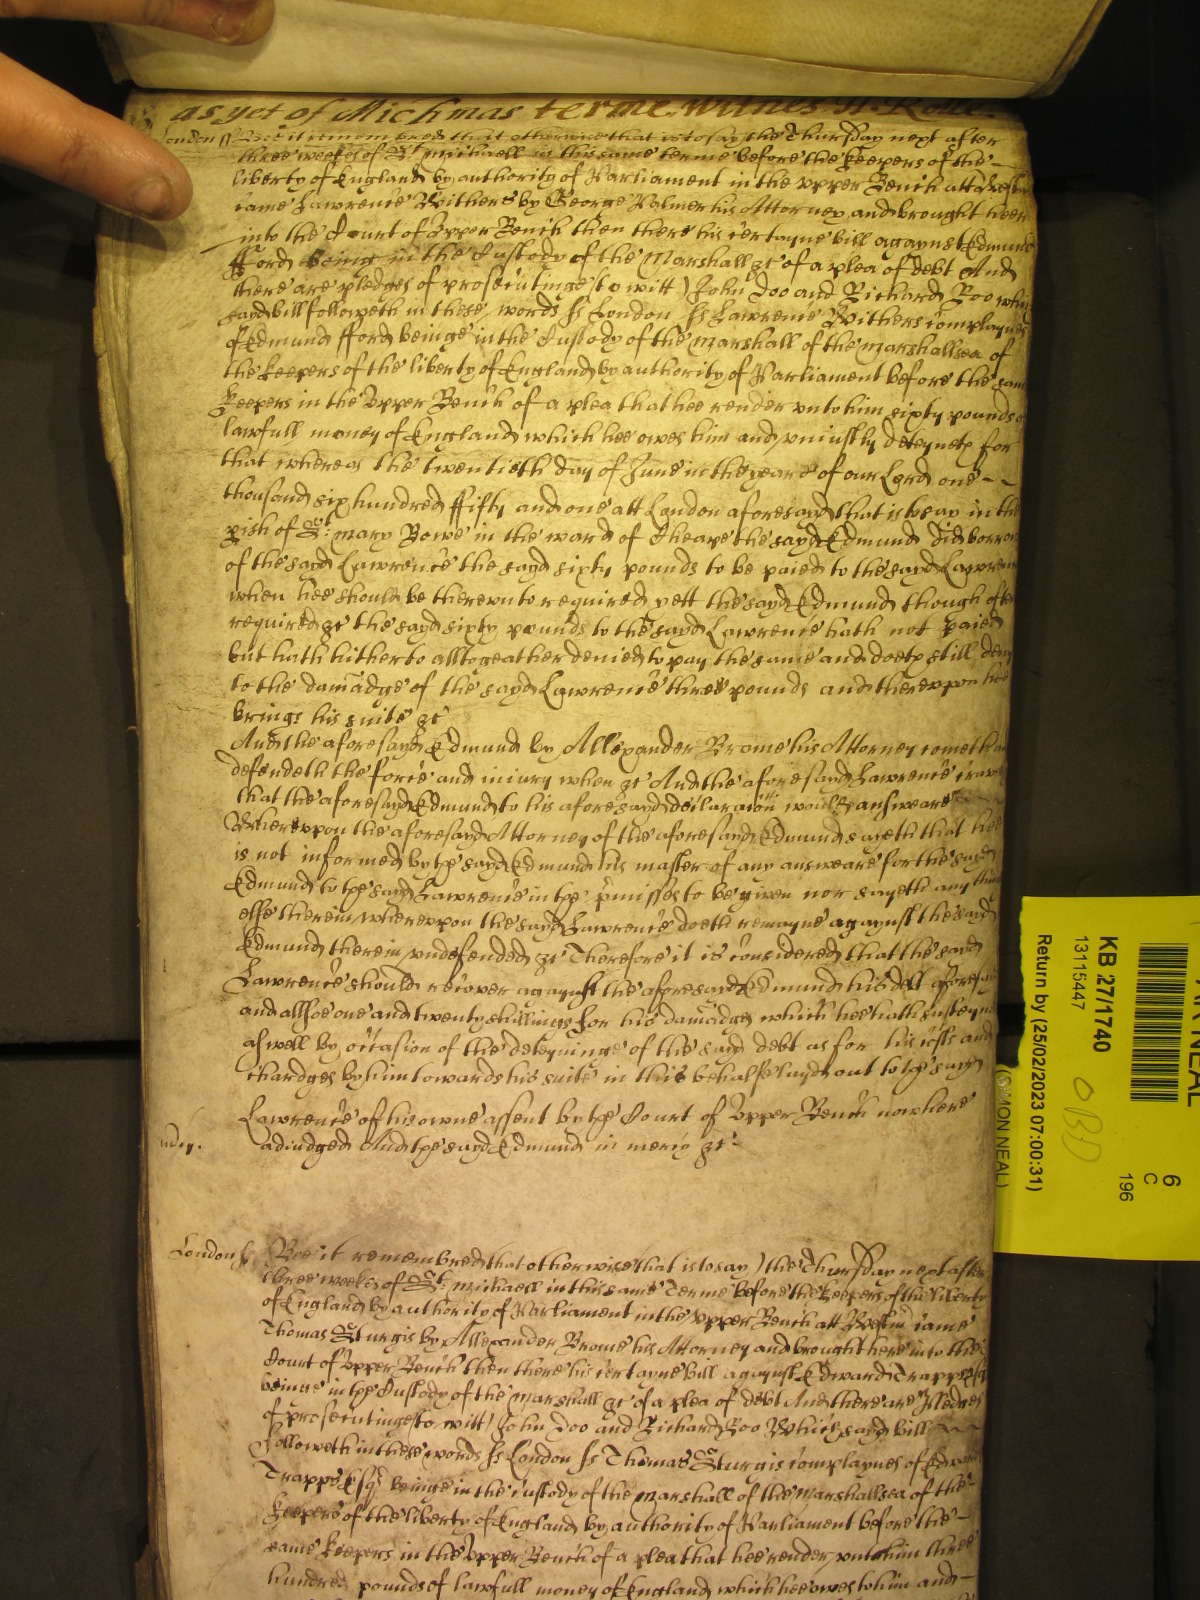 as yet of Michmas terme. witnes. H: Rolle.
London ss Bee it remembred that otherwise that is to say the Thursday next after
three weekes of St. Michaell in this same terme before the keepers of the
liberty of England by authority of Parliament in the upper Bench att Westm
came Lawrence Withers by George Palmer his Attorney and brought heer
into the Court of Upper Bench then there his certayne bill agaynst Edmund
fford being in the Custody of the Marshall &c of a plea of debt And
there are pledges of prosecutinge (to witt) John Doo and Richard Roo which
sayd bill followeth in these words ss London ss Lawrence Withers complaynes
of Edmund fford beinge in the Custody of the Marshall of the Marshallsea of
the keepers of the liberty of England by authority of Parliament before the same
keepers in the Upper Bench of a plea that hee render unto him sixty pounds of
lawfull money of England which hee owes him and uniustly deteyneth for
that whereas the twentieth day of June in the yeare of our Lord one
thousand six hundred ffifty and one att London aforesayd that is to say in the
pish of St: Mary Bowe in the ward of Cheape the sayd Edmund did borrow
of the sayd Lawrence the sayd sixty pounds to be paied to the sayd Lawrence
when hee should be thereunto required yett the sayd Edmund though often
required &c the sayd sixty pounds to the sayd Lawrence hath not paied
but hath hitherto alltogeather denied to pay the same and doeth still deny
to the damadge of the sayd Lawrence three pounds and thereuppon hee
brings his suite &c
And the aforesayd Edmund by Allexander Brome his Attorney cometh and
defendeth the force and iniury when &c And the aforesayd Lawrence craves
that the aforesayd Edmund to his aforesayd declaracion would answeare
Whereuppon the aforesayd Attorney of the aforesayd Edmund sayeth that hee
is not informed by the sayd Edmund his master of any answeare for the sayd
Edmund to the sayd Lawrence in the pmisses to be given nor sayeth any thing
else therein whereuppon the sayd Lawrence doeth remayne agaynst the sayd
Edmund therein undefended &c Therefore it is considered that the sayd
Lawrence should recover agaynst the aforesayd Edmund his debt aforesayd
and allsoe one and twenty shillings for his damadges which hee hath susteyned
aswell by occasion of the deteyninge of the sayd debt as for his costs and
chardges by him towards his suite in this behalfe layd out to the sayd
Lawrence of his owne assent by the Court of Upper Bench nowhere
adiudged And the sayd Edmund in mercy &c
London ss Bee it remembred that otherwise that is to say) the Thursday next after
three weekes of St: Michaell in this same Terme before the keepers of the liberty
of England by authority of Parliament in the upper Bench att Westm came
Thomas Sturgis by Allexander Brome his Attorney and brought here into the
Court of Upper Bench then there his certayne bill agaynst Edward Trapps Esq
beinge in the Custody of the Marshall &c of a plea of debt And there are pledges
of prosecutinge (to witt) John Doo and Richard Roo Which sayd bill
followeth in these words ss London ss Thomas Sturgis complaynes of Edward
Trapps Esqr beinge in the custody of the Marshall of the Marshallsea of the
keepers of the liberty of England by authority of Parliament before the
same keepers in the Upper Bench of a plea that hee render unto him three
hundred pounds of lawfull money of England which hee owes to him and
KB 27/1740
13115447
Return by (25/02/2023 07:00:31)
(SIMON NEAL)
6
C
196
OBD